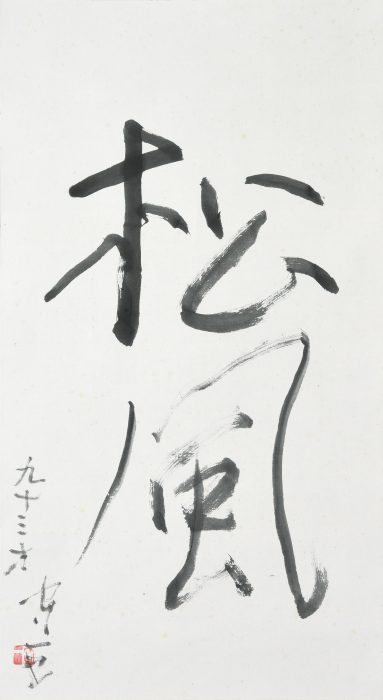 松風
九十三才